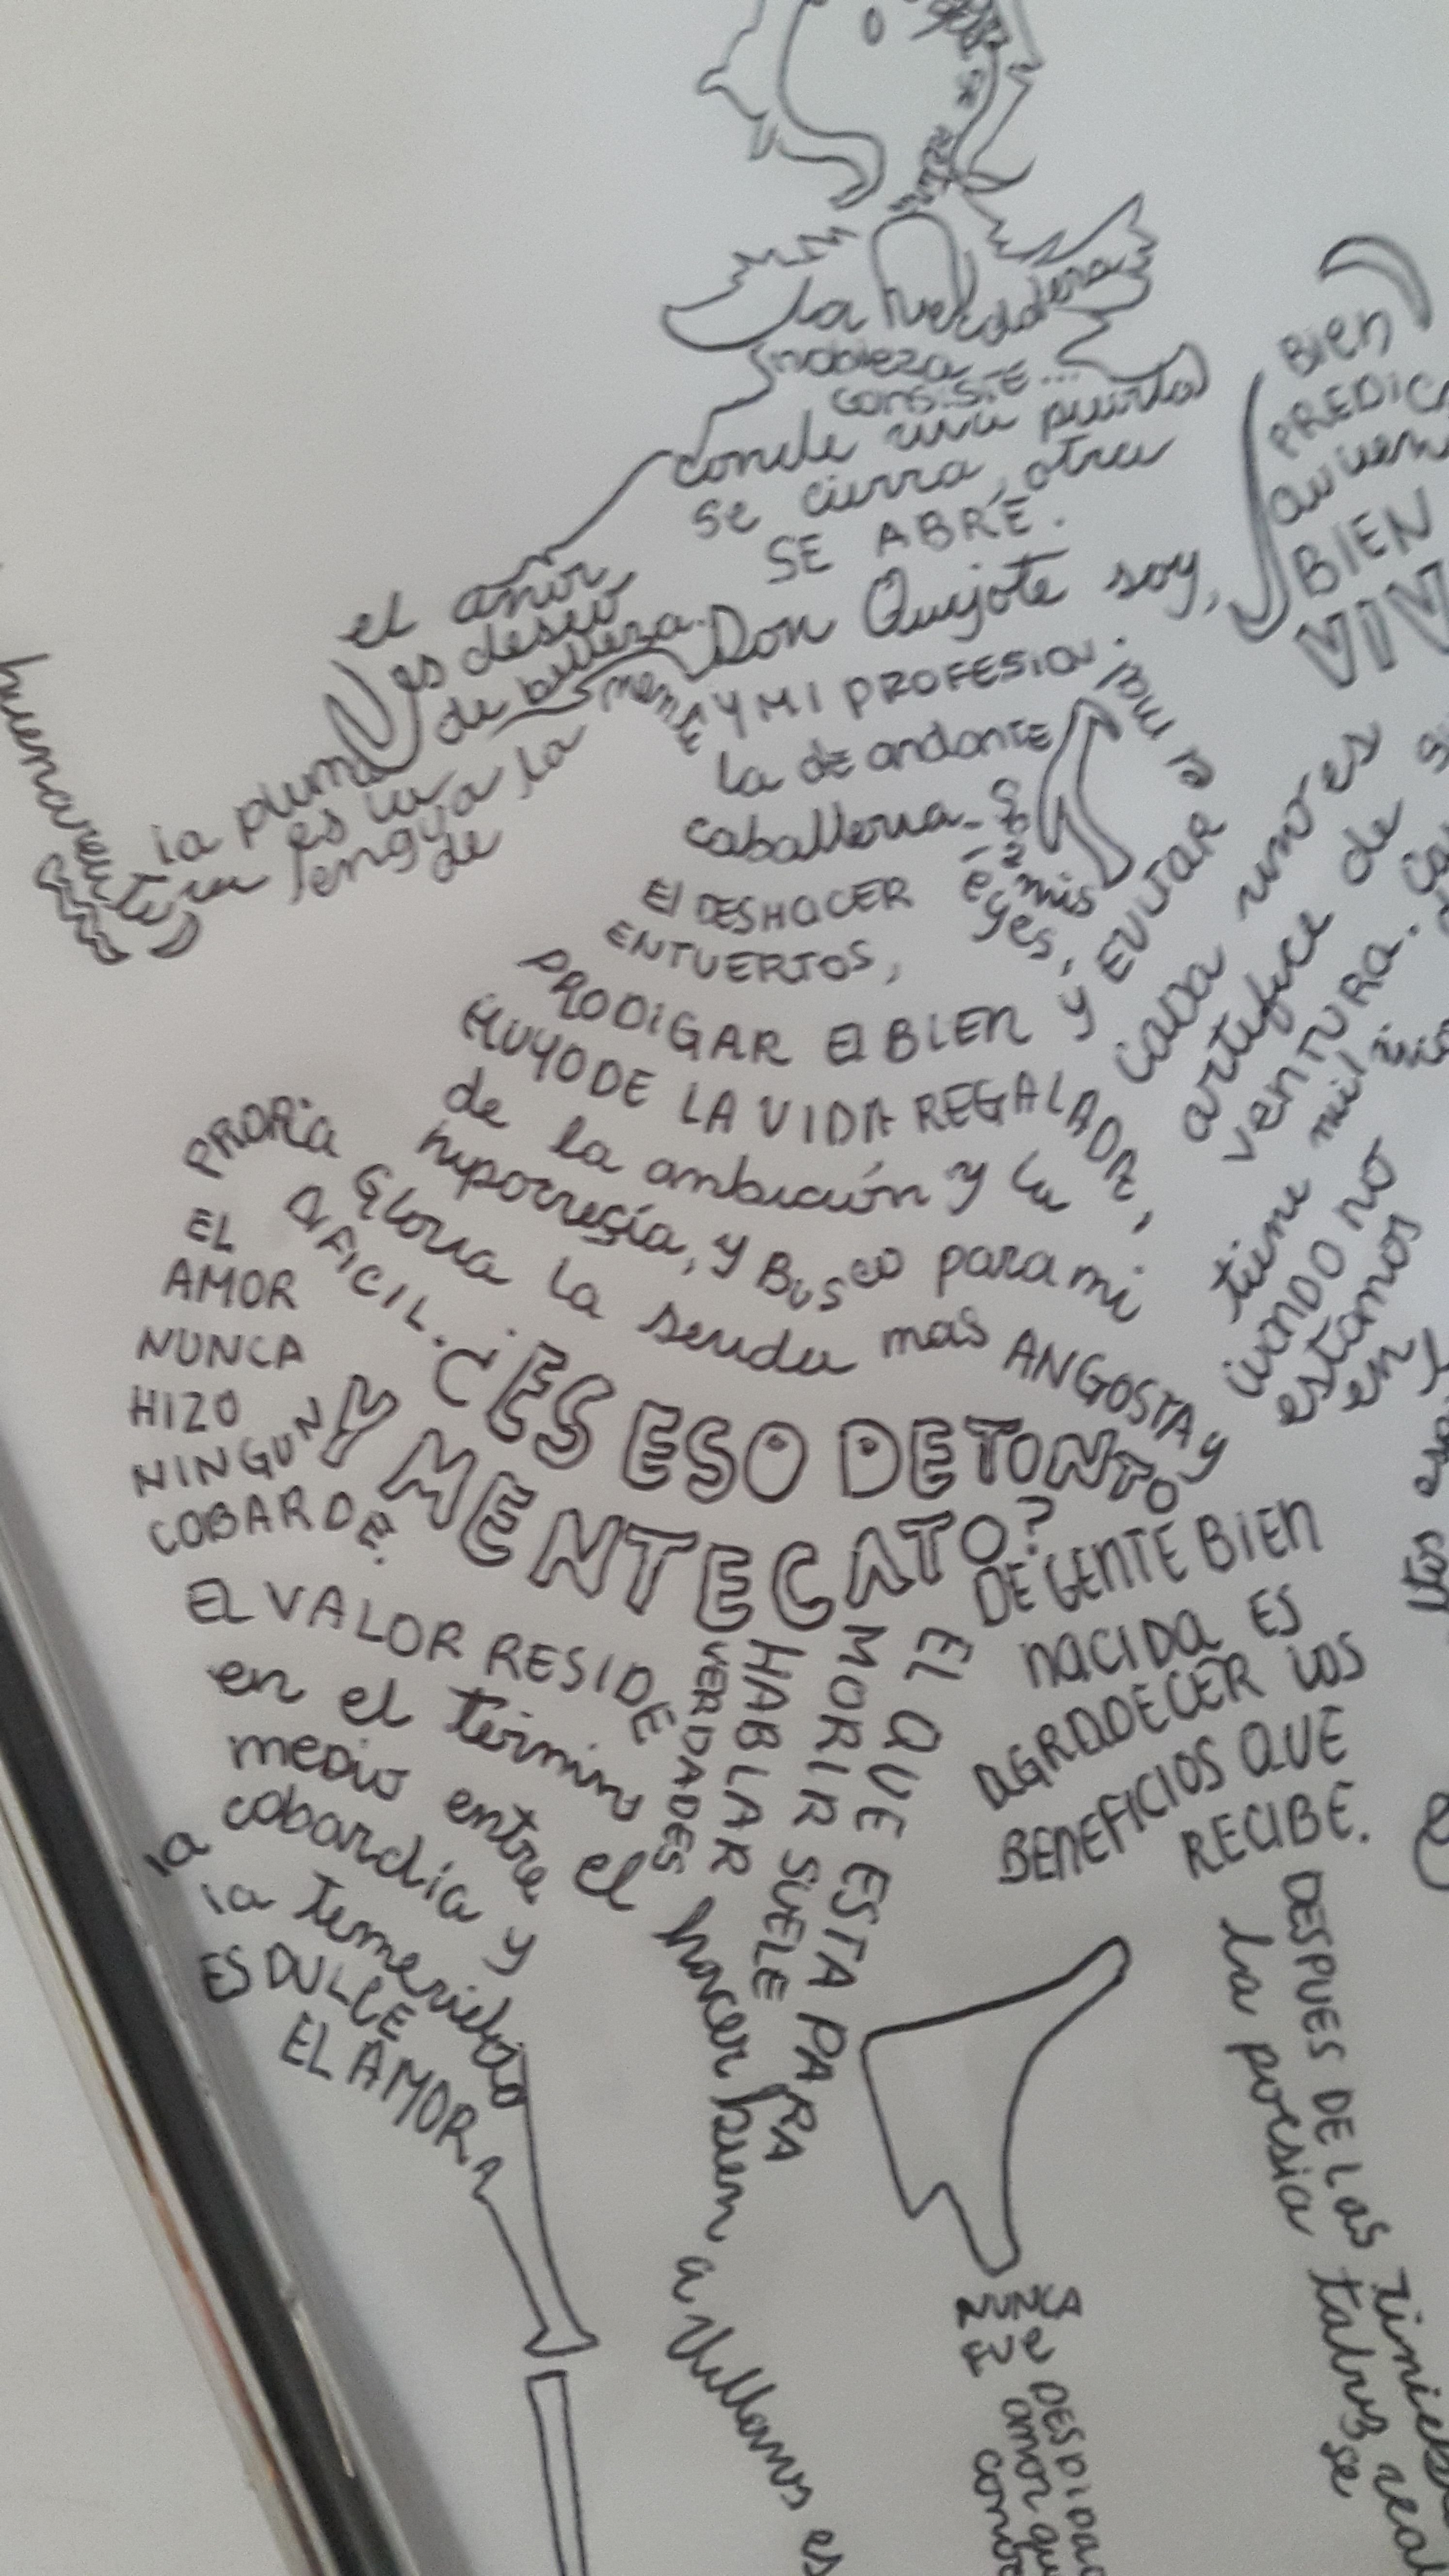 La verdadera
nobleza
consiste...
donde una puerta
se cierra, otra
SE ABRE.
el amor
es deseo
de belleza.
la pluma
es la
lengua de la
mente
Don Quijote soy,
Y MI PROFESION
la de andante
caballeria.
mis
EL DESHACER
ENTUERTOS,
PRODIGAR EL BIEN Y EVITAR
EL MAL.
HUYO DE LA VIDA REGALADA,
de la ambición y la
hipocresía, y Busco para mi
PROPIA Gloria la senda mas ANGOSTA y
DIFICIL.
¿ES ESO DE TONTO
Y MENTECATO?
BIEN
BIEN
cada uno es
artifice de
ventura.
tiene mil
cuando no
estamos
en
EL
AMOR
NUNCA
HIZO
NINGUN
COBARDE.
EL VALOR RESIDE
en el termino
medio entre
la cobardía y
la Temeridad
ES DULCE
EL AMOR
EL QUE ESTA PARA
MORIR SUELE
HABLAR
VERDADES
DE GENTE BIEN
NACIDA ES
AGRADECER LOS
BENEFICIOS QUE
RECIBE.
el hacer bien a Villanos es
DESPUES DE LAS
la poesia tal vez se
NUNCA
FUE DESDI
amor que